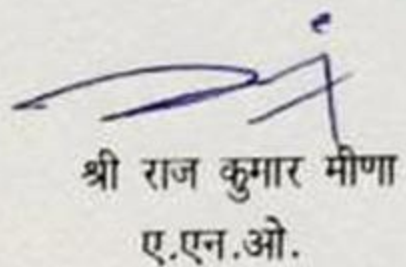 श्री राज कुमार मीणा
ए.एन.ओ.